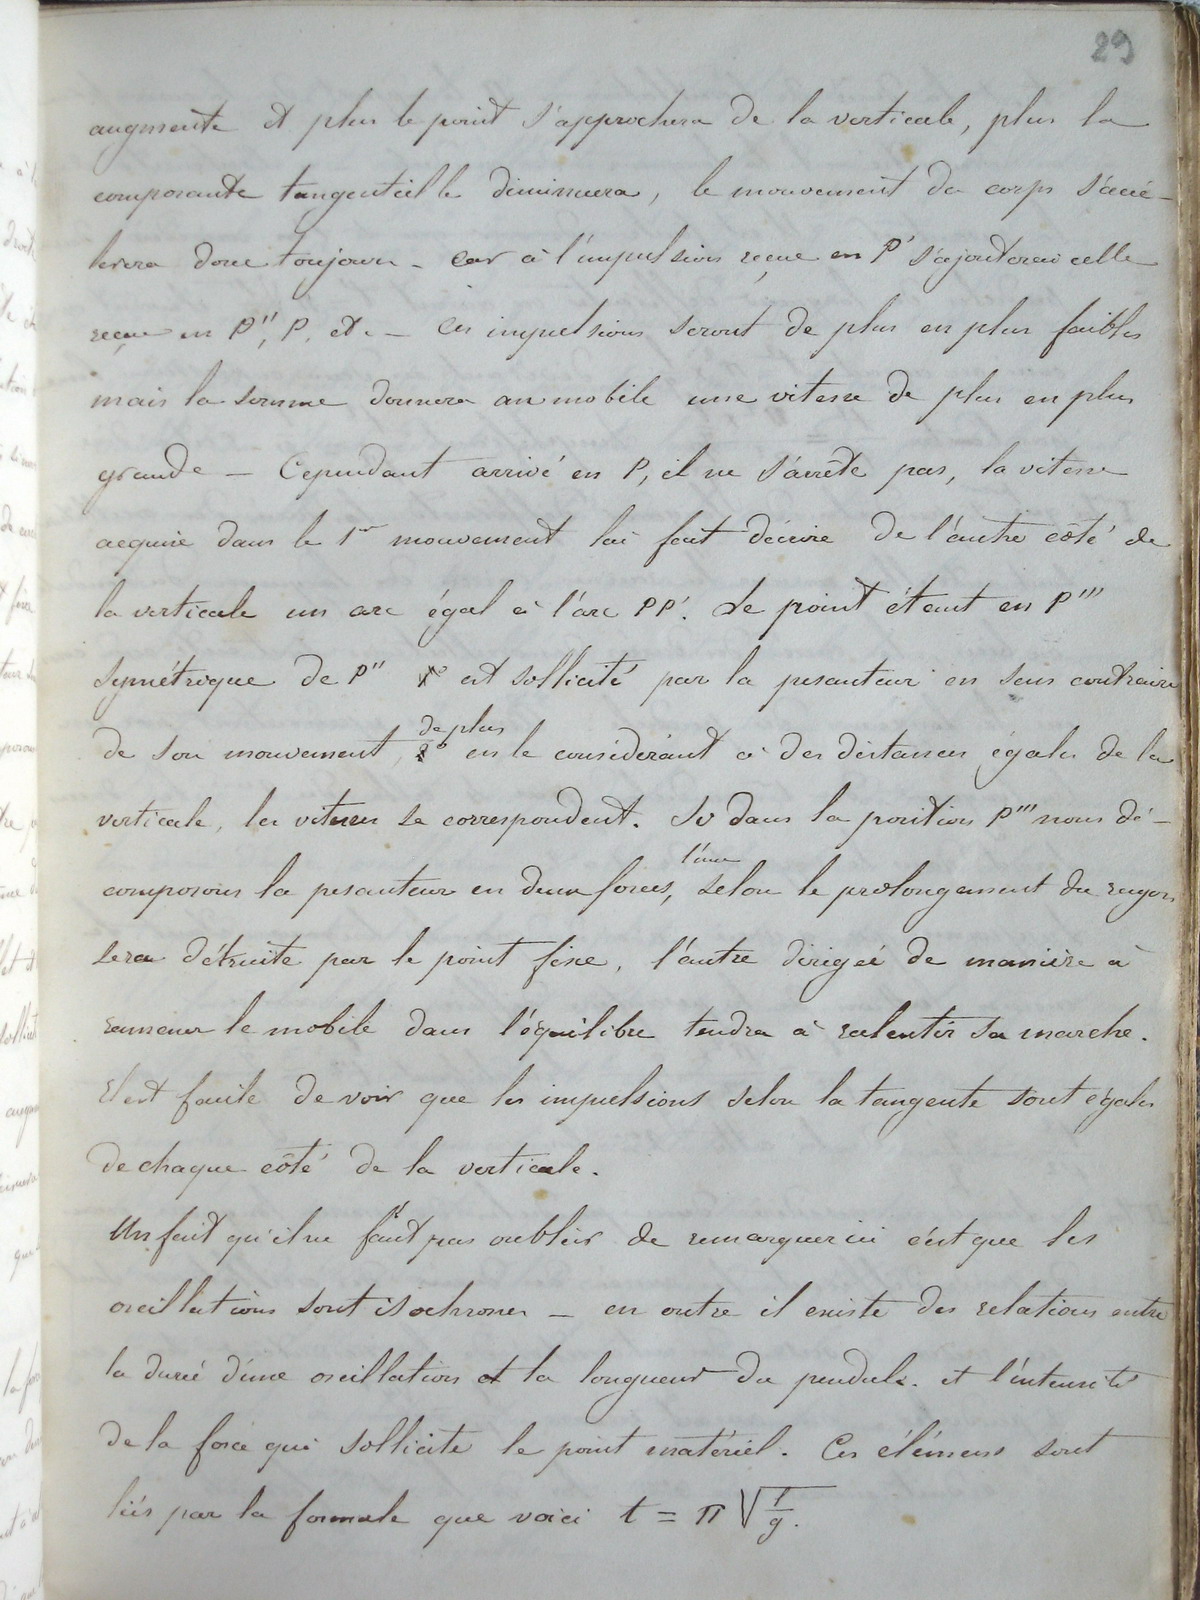 29
augmente et plus le point s'approchera de la verticale, plus la
composante tangentielle diminuera, le mouvement du corps s'accé-
lerera donc toujours - car à l'impulsion reçue en P' s'ajoutera celle
reçue en P'', P, etc - Ces impulsions seront de plus en plus faibles
mais la somme donnera au mobile une vitesse de plus en plus
grande - Cependant arrivé en P, il ne s'arrête pas, la vitesse
acquise dans le 1er mouvement lui fait décrire de l'autre côté de
la verticale un arc égal à l'arc PP'. Le point étant en P'''
symétrique de P'' est sollicité par la pesanteur en sens contraire
de plus
de son mouvement, en le considérant à des distances égales de la
verticale, les vitesses se correspondent. Si dans la position P''' nous dé-
l'une
composons la pesanteur en deux forces, selon le prolongement du rayon
sera détruite par le point fixe, l'autre dirigée de manière à
ramener le mobile dans l'équilibre tendra à ralentir sa marche.
Il est facile de voir que les impulsions selon la tangente sont égales
de chaque côté de la verticale.
Un fait qu'il ne faut pas oublier de remarquer ici c'est que les
oscillations sont isochrones - en outre il existe des relations entre
la durée d'une oscillation et la longueur du pendule. et l'intensité
de la force qui sollicite le point matériel. Ces élémens sont
liés par la formule que voici t = π √(l/g).